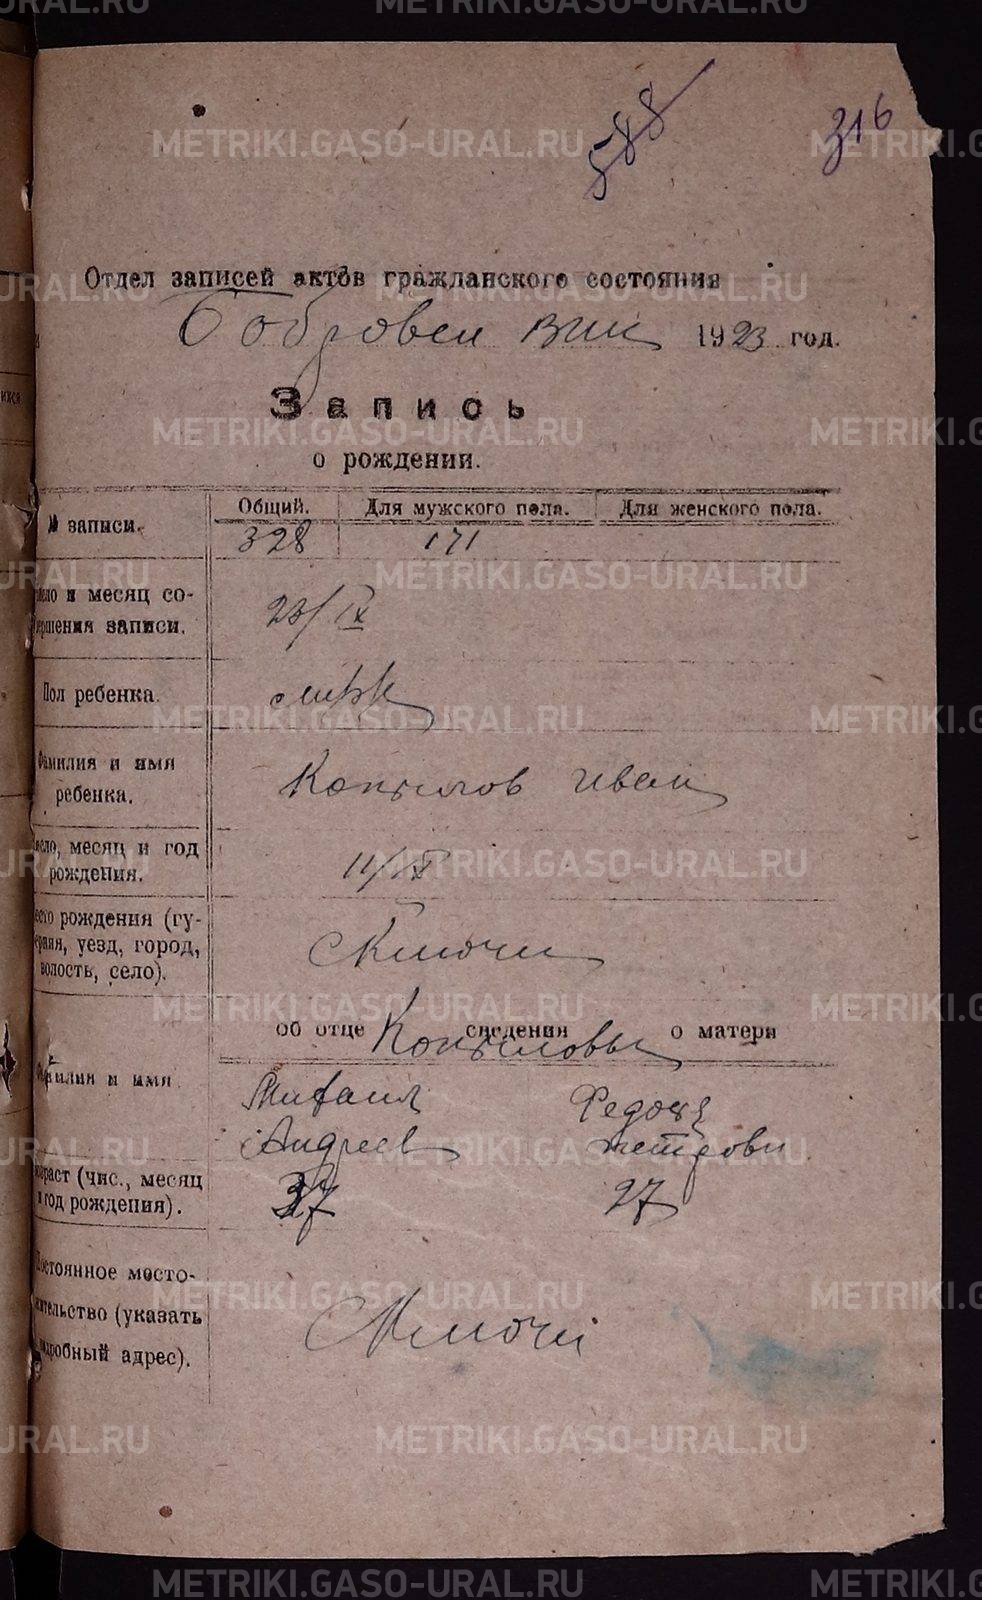 588
316
Отдел записей актов гражданского состояния
Бобровск вик 1923 год.
Запись
о рождении.
№ записи. Общий. Для мужского пола. Для женского пола.
328 171
число и месяц со-
вершения записи.
/IX
Пол ребенка.
муж
Фамилия и имя
ребенка.
Копылов Иван
число, месяц и год
рождения.
11/IX
место рождения (гу-
берния, уезд, город,
волость, село).
с Ключи
об отце сведения о матери
Копыловы
Фамилия и имя
Михаил
Андреев
Федо
Петровн
Возраст (чис., месяц
и год рождения).
37 27
Постоянное место-
жительство (указать
подробный адрес).
с Ключи
METRIKI.GASO-URAL.RU